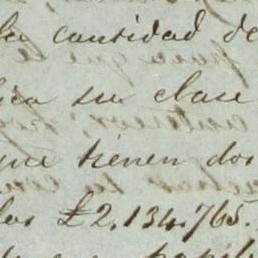 la cantidad de
su clase
que tienen dos
los £2.134.765.